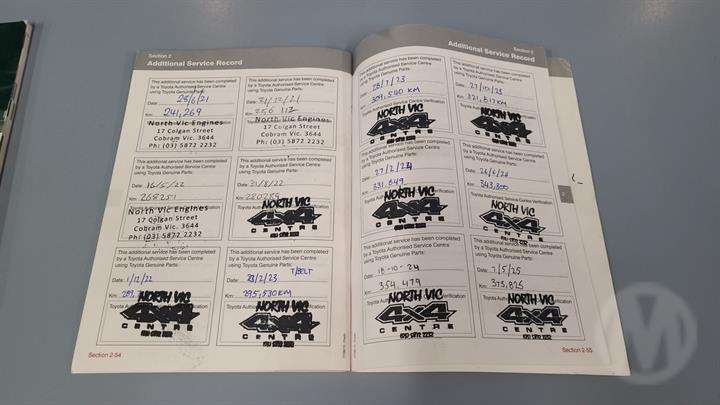 Section 2
Additional Service Record
This additional service has been completed
by a Toyota Authorised Service Centre
using Toyota Genuine Parts:
Date: 23/6/21
Km: 241,269
North Vic Engines
17 Colgan Street
Cobram Vic. 3644
Ph: (03) 5872 2232
This additional service has been completed
by a Toyota Authorised Service Centre
using Toyota Genuine Parts:
Date: 21/12/21
Km: 256 112
North Vic Engines
17 Colgan Street
Cobram Vic. 3644
Ph: (03) 5872 2232
This additional service has been completed
by a Toyota Authorised Service Centre
using Toyota Genuine Parts:
Date: 16/5/22
Km: 268251
North Vic Engines
17 Colgan Street
Cobram Vic. 3644
Ph: (03) 5872 2232
This additional service has been completed
by a Toyota Authorised Service Centre
using Toyota Genuine Parts:
Date: 31/8/22
Km:
Toyota
NORTH VIC
4x4
CENTRE
(03) 5872 2232
This additional service has been completed
by a Toyota Authorised Service Centre
using Toyota Genuine Parts:
Date: 1/12/22
Km:
Toyota
NORTH VIC
4x4
CENTRE
(03) 5872 2232
This additional service has been completed
by a Toyota Authorised Service Centre
using Toyota Genuine Parts:
T/BELT
Date: 23/2/23
Km: 295,530KM
Toyota
NORTH VIC
4x4
CENTRE
(03) 5872 2232
Section 2-54
Section 2
Additional Service Record
This additional service has been completed
by a Toyota Authorised Service Centre
using Toyota Genuine Parts:
Date: 28/7/23
Km: 309,540 KM
Toyota Authorised Service Centre Verification
NORTH VIC
4x4
CENTRE
This additional service has been completed
by a Toyota Authorised Service Centre
using Toyota Genuine Parts:
Date: 27/10/23
Km: 321,817KM
Toyota Authorised Service Centre Verification
NORTH VIC
4x4
CENTRE
This additional service has been completed
by a Toyota Authorised Service Centre
using Toyota Genuine Parts:
Date: 27/2/24
Km: 331,849
Toyota
NORTH VIC
4x4
CENTRE
(03) 5872 2232
This additional service has been completed
by a Toyota Authorised Service Centre
using Toyota Genuine Parts:
Date: 26/6/24
Km: 343,300
Toyota
NORTH VIC
4x4
CENTRE
(03) 5872 2232
This additional service has been completed
by a Toyota Authorised Service Centre
using Toyota Genuine Parts:
Date: 18-10-24
Km: 354,479
Toyota
NORTH VIC
4x4
CENTRE
(03) 5872 2232
This additional service has been completed
by a Toyota Authorised Service Centre
using Toyota Genuine Parts:
Date: 7/5/25
Km: 375,825
Toyota
NORTH VIC
4x4
CENTRE
(03) 5872 2232
2
Section 2-55
M